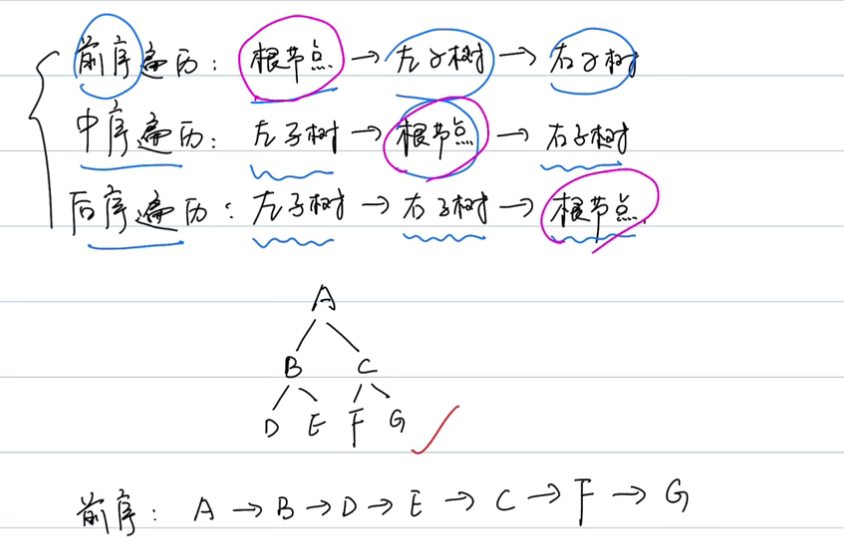 前序遍历：根节点→左子树→右子树
中序遍历：左子树→根节点→右子树
后序遍历：左子树→右子树→根节点
A
B C
D E F G
前序：A→B→D→E→C→F→G